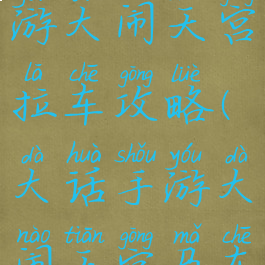 游大闹天宫
lā chē gōng lüè
拉车攻略(
dà huà shǒu yóu dà
大话手游大
nào tiān gōng mǎ chē
闹天宫马车